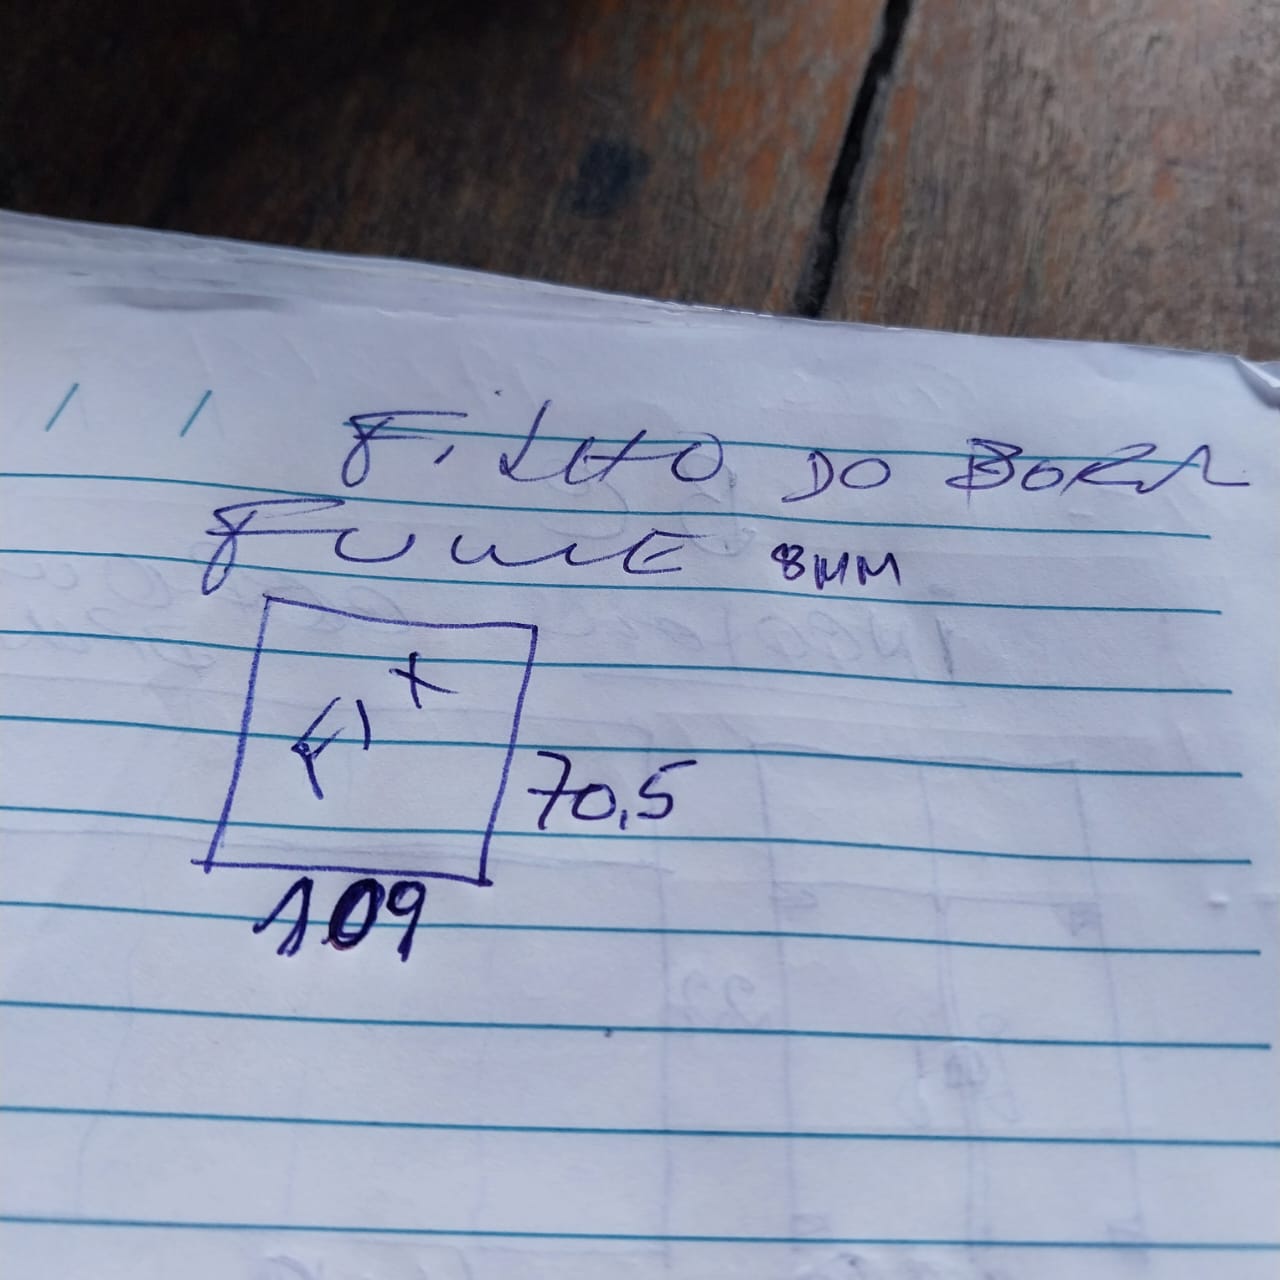 FILHO DO BORA
FUME 8MM
FIX
70,5
109